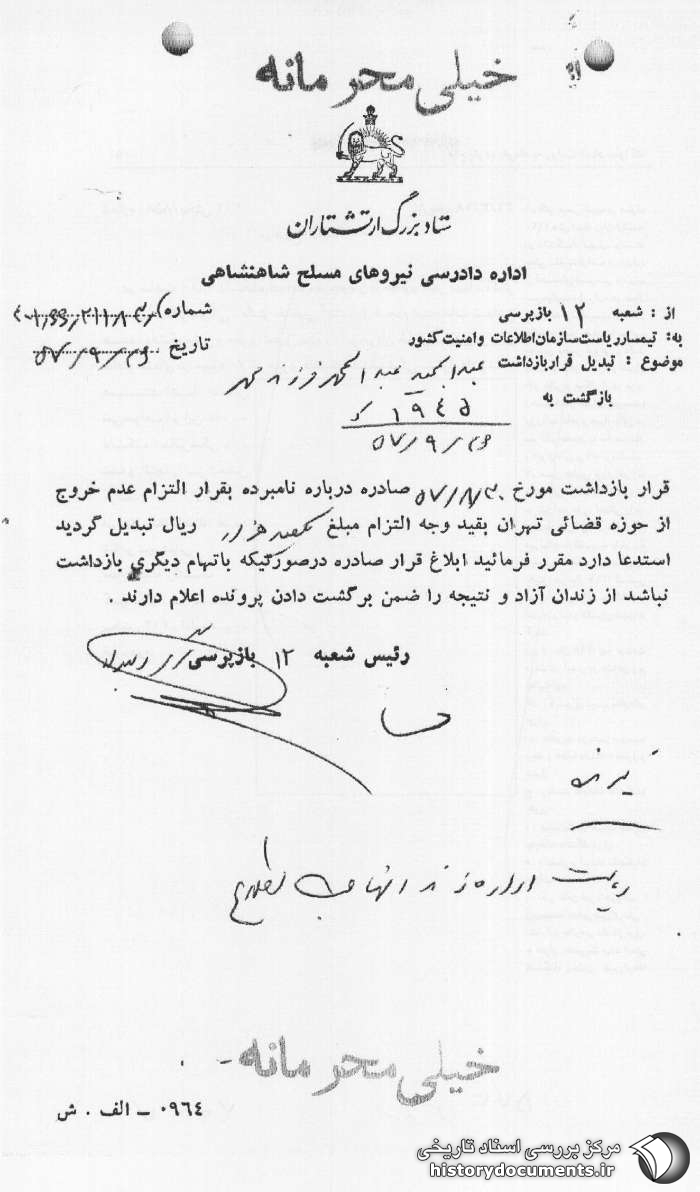 خیلی محرمانه
ستاد بزرگ ارتشتاران
اداره دادرسی نیروهای مسلح شاهنشاهی
از : شعبه ۱۲ بازپرسی
شماره
به: تیمسار ریاست سازمان اطلاعات و امنیت کشور
تاریخ ۵۷/۹/۲۶
موضوع : تبدیل قرار بازداشت عبدالمجید عبدا
بازگشت به
۱۹۴۵
۵۷/۹/۲۶
قرار بازداشت مورخ ۵۷/۸/۳۰ صادره درباره نامبرده بقرار التزام عدم خروج
از حوزه قضائی تهران بقید وجه التزام مبلغ یکصد هزار ریال تبدیل گردید
استدعا دارد مقرر فرمائید ابلاغ قرار صادره درصورتیکه باتهام دیگری بازداشت
نباشد از زندان آزاد و نتیجه را ضمن برگشت دادن پرونده اعلام دارند .
رئیس شعبه ۱۲ بازپرسی
خیلی محرمانه
۰۹۶۴ – الف . ش
مرکز بررسی اسناد تاریخی
historydocuments.ir